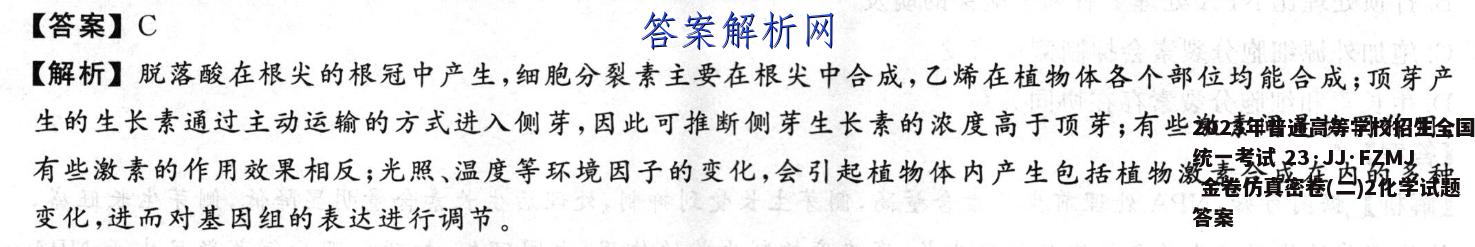 【答案】C
答案解析网
【解析】脱落酸在根尖的根冠中产生,细胞分裂素主要在根尖中合成,乙烯在植物体各个部位均能合成;顶芽产
生的生长素通过主动运输的方式进入侧芽,因此可推断侧芽生长素的浓度高于顶芽;有些
有些激素的作用效果相反;光照、温度等环境因子的变化,会引起植物体内产生包括植物激素合成在内的多种
变化,进而对基因组的表达进行调节。
2023年普通高等学校招生全国
统一考试 23·JJ·FZMJ
金卷仿真密卷(二)2化学试题
答案